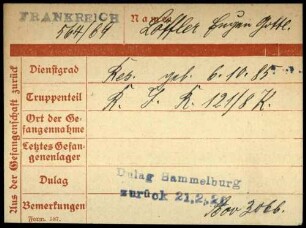 FRANKREICH
564/64
Name
Löffler Eugen Gottl.
Dienstgrad
Res. geb. 6.10.85
Truppenteil
R. I. R. 121/8 K.
Ort der Gefangennahme
Letztes Gefangenenlager
Dulag
Dulag Hammelburg
zurück 21.2.20
Bemerkungen
3066.
Form. 187.
Aus der Gefangenschaft zurück